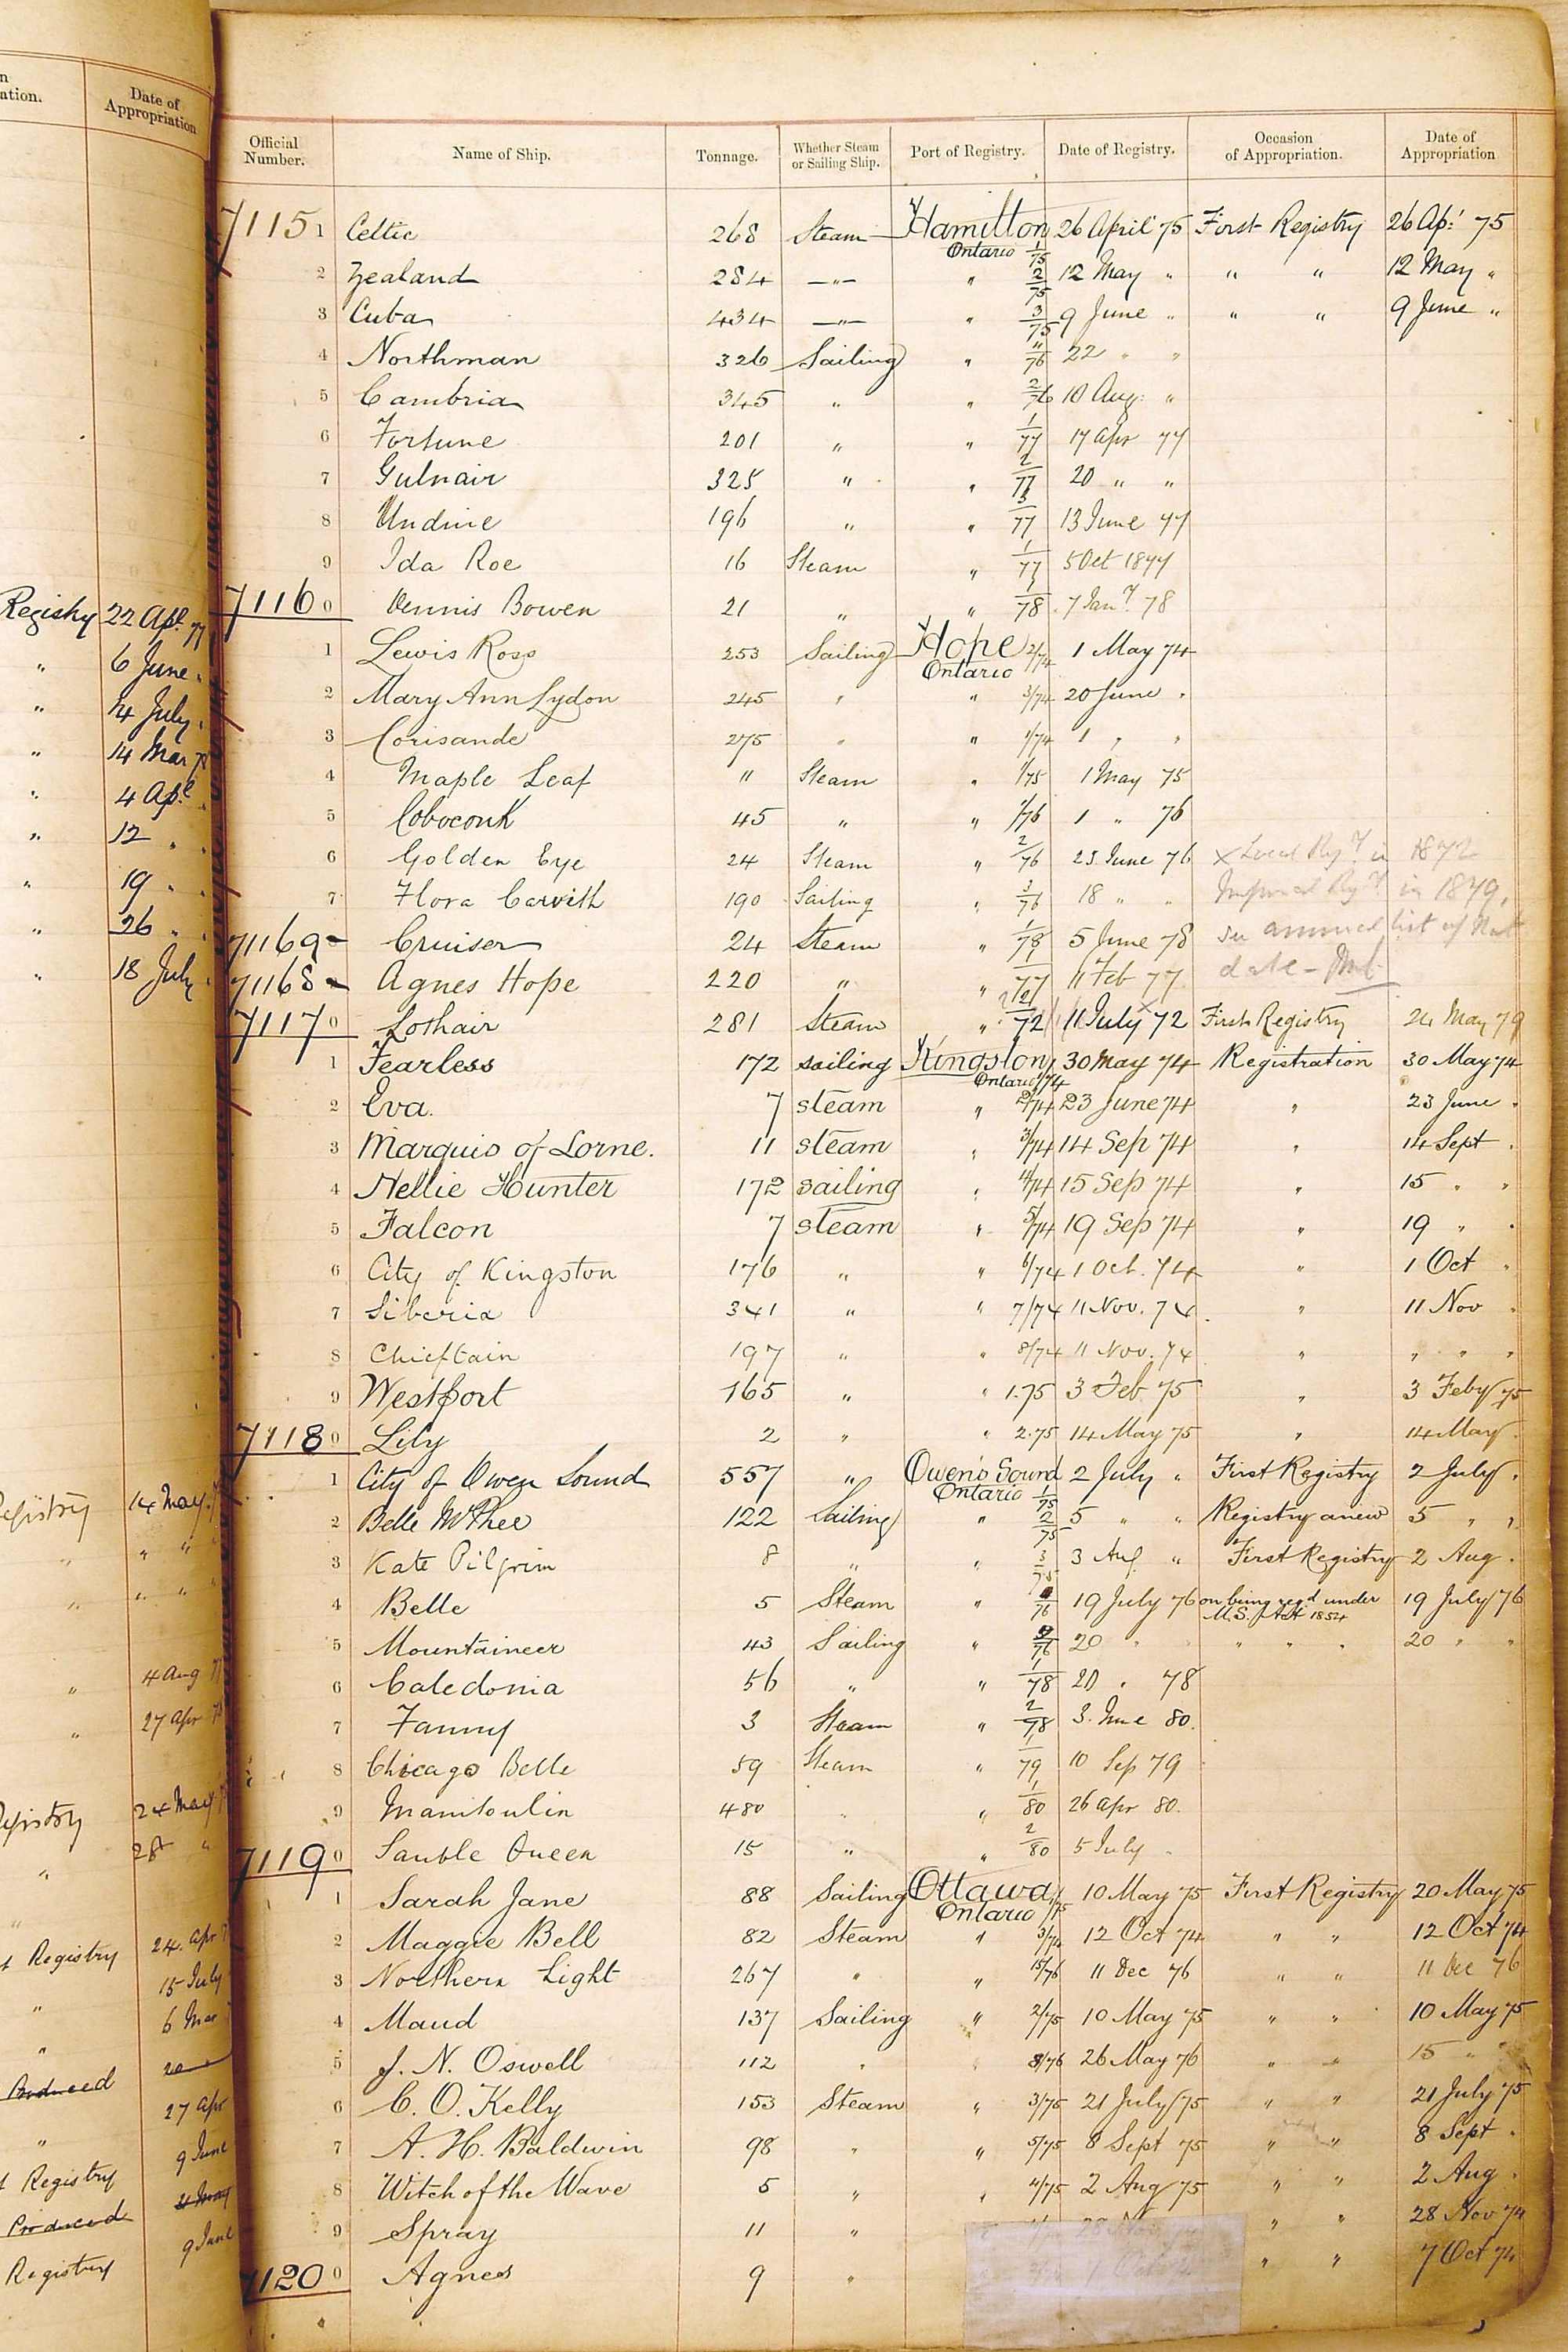 n
ation.
Date of
Appropriation
Registry 22 Apl. 77
" 6 June "
" 4 July "
" 14 Mar 78
" 4 Apl "
" 12 " "
" 19 " "
" 26 " "
" 18 July "
egistry 14 May
" " "
" " "
" 4 Aug
" 27 Apr
egistry 24 May
" 28 "
"
t Registry 24 Apr
" 15 July
" 6 Mar
Produced 20
" 27 Apr
t Registry 9 June
Produced
Registry 9 June
Official Number. Name of Ship. Tonnage. Whether Steam or Sailing Ship. Port of Registry. Date of Registry. Occasion of Appropriation. Date of Appropriation
7115 1 Celtic 268 Steam Hamilton Ontario 1/75 26 April 75 First Registry 26 Ap: 75
2 Zealand 284 —"— " 2/75 12 May " " " 12 May "
3 Cuba 434 —"— " 3/75 9 June " " " 9 June "
4 Northman 326 Sailing " /76 22 " "
5 Cambria 345 " " 2/76 10 Aug: "
6 Fortune 201 " " 1/77 17 Apr 77
7 Gulnair 325 " " 2/77 20 " "
8 Undine 196 " " 3/77 13 June 77
9 Ida Roe 16 Steam " 1/77 5 Oct 1877
7116 0 Dennis Bowen 21 " " 1/78 7 Jany. 78
1 Lewis Ross 253 Sailing Hope Ontario 2/74 1 May 74
2 Mary Ann Lydon 245 " " 3/74 20 June "
3 Corisande 275 " " 1/74 1 " "
4 Maple Leaf " Steam " 1/75 1 May 75
5 Coboconk 45 " " 1/76 1 " 76
6 Golden Eye 24 Steam " 2/76 23 June 76 x Local Regy. in 1872
7 Flora Carvith 190 Sailing " 3/76 18 " " Imperial Regy. in 1879,
71169- Cruiser 24 Steam " 1/78 5 June 78 see annual list of that
71168- Agnes Hope 220 " " 1/77 11 Feb 77 date -
7117 0 Lothair 281 Steam " /72 11 July x 72 First Registry 24 May 79
1 Fearless 172 sailing Kingston Ontario 1/74 30 May 74 Registration 30 May 74
2 Eva. 7 steam " 2/74 23 June 74 " 23 June "
3 Marquis of Lorne. 11 steam " 3/74 14 Sep 74 " 14 Sept "
4 Nellie Hunter 172 sailing " 4/74 15 Sep 74 " 15 " "
5 Falcon 7 steam " 5/74 19 Sep 74 " 19 " "
6 City of Kingston 176 " " 6/74 1 Oct. 74 " 1 Oct "
7 Siberia 341 " " 7/74 11 Nov. 74. " 11 Nov "
8 Chieftain 197 " " 8/74 11 Nov. 74 " " " "
9 Westport 165 " " 1.75 3 Feb 75 " 3 Feby 75
7118 0 Lily 2 " " 2.75 14 May 75 " 14 May "
1 City of Owen Sound 557 " Owen's Sound Ontario 1/75 2 July " First Registry 2 July "
2 Belle McPhee 122 Sailing " 2/75 5 " " Registry anew 5 " "
3 Kate Pilgrim 8 " " 3/75 3 Aug " First Registry 2 Aug "
4 Belle 5 Steam " /76 19 July 76 on being regd under M.S. Act 1854 19 July 76
5 Mountaineer 43 Sailing " /76 20 " " " " " 20 " "
6 Caledonia 56 " " 1/78 20 " 78
7 Fanny 3 Steam " 2/78 3 June 80.
8 Chicago Belle 59 Steam " 1/79 10 Sep 79
9 Manitoulin 480 " " 1/80 26 Apr 80.
7119 0 Sauble Queen 15 " " 2/80 5 July "
1 Sarah Jane 88 Sailing Ottawa Ontario 1/75 10 May 75 First Registry 20 May 75
2 Maggie Bell 82 Steam " 3/74 12 Oct 74 " " 12 Oct 74
3 Northern Light 267 " " 15/76 11 Dec 76 " " 11 Dec 76
4 Maud 137 Sailing " 2/75 10 May 75 " " 10 May 75
5 J. N. Oswell 112 " " 8/76 26 May 76 " " 15 " "
6 C. O. Kelly 153 Steam " 3/75 21 July 75 " " 21 July 75
7 A. H. Baldwin 98 " " 5/75 8 Sept 75 " " 8 Sept "
8 Witch of the Wave 5 " " 4/75 2 Aug 75 " " 2 Aug "
9 Spray 11 " 28 Nov " " 28 Nov 74
7120 0 Agnes 9 " " " 7 Oct 74